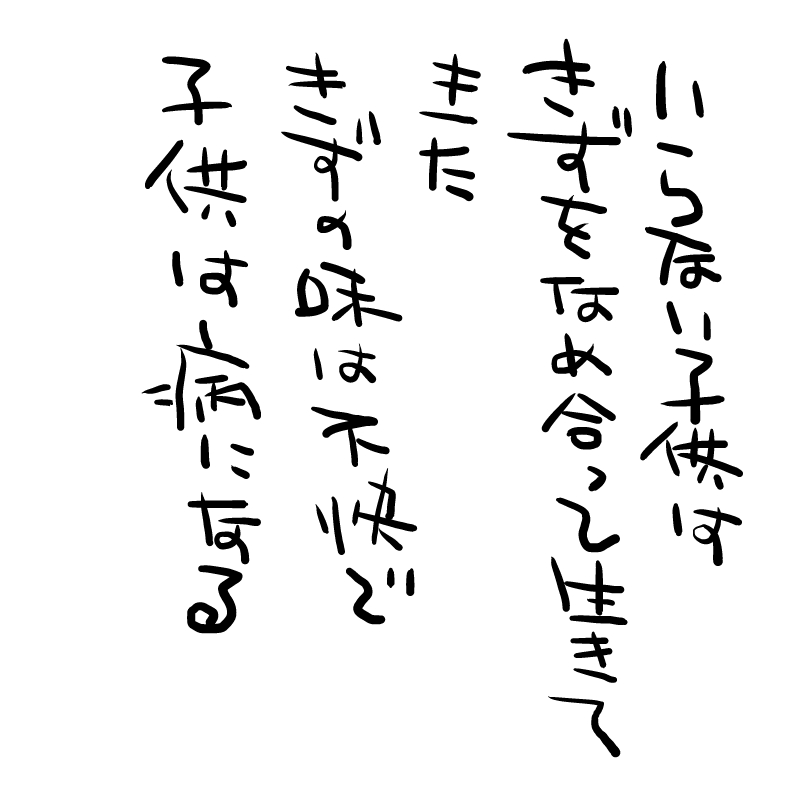 いらない子供は
きずをなめ合って生きて
きた
きずの味は不快で
子供は病になる